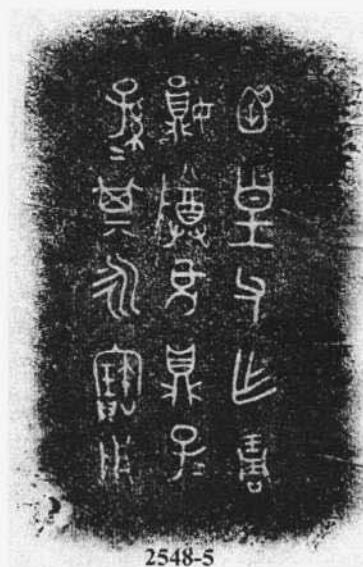 函皇父乍周
妘尊鼎子=
孫=其永寶用
2548-5